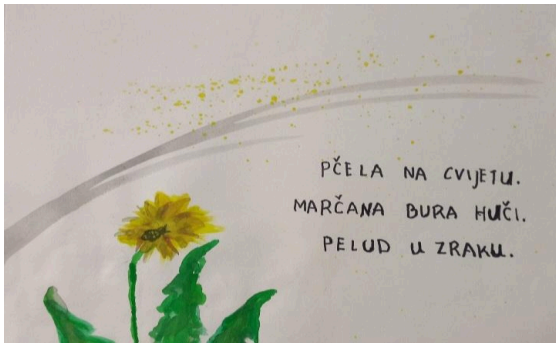 PČELA NA CVIJETU.
MARČANA BURA HUČI.
PELUD U ZRAKU.